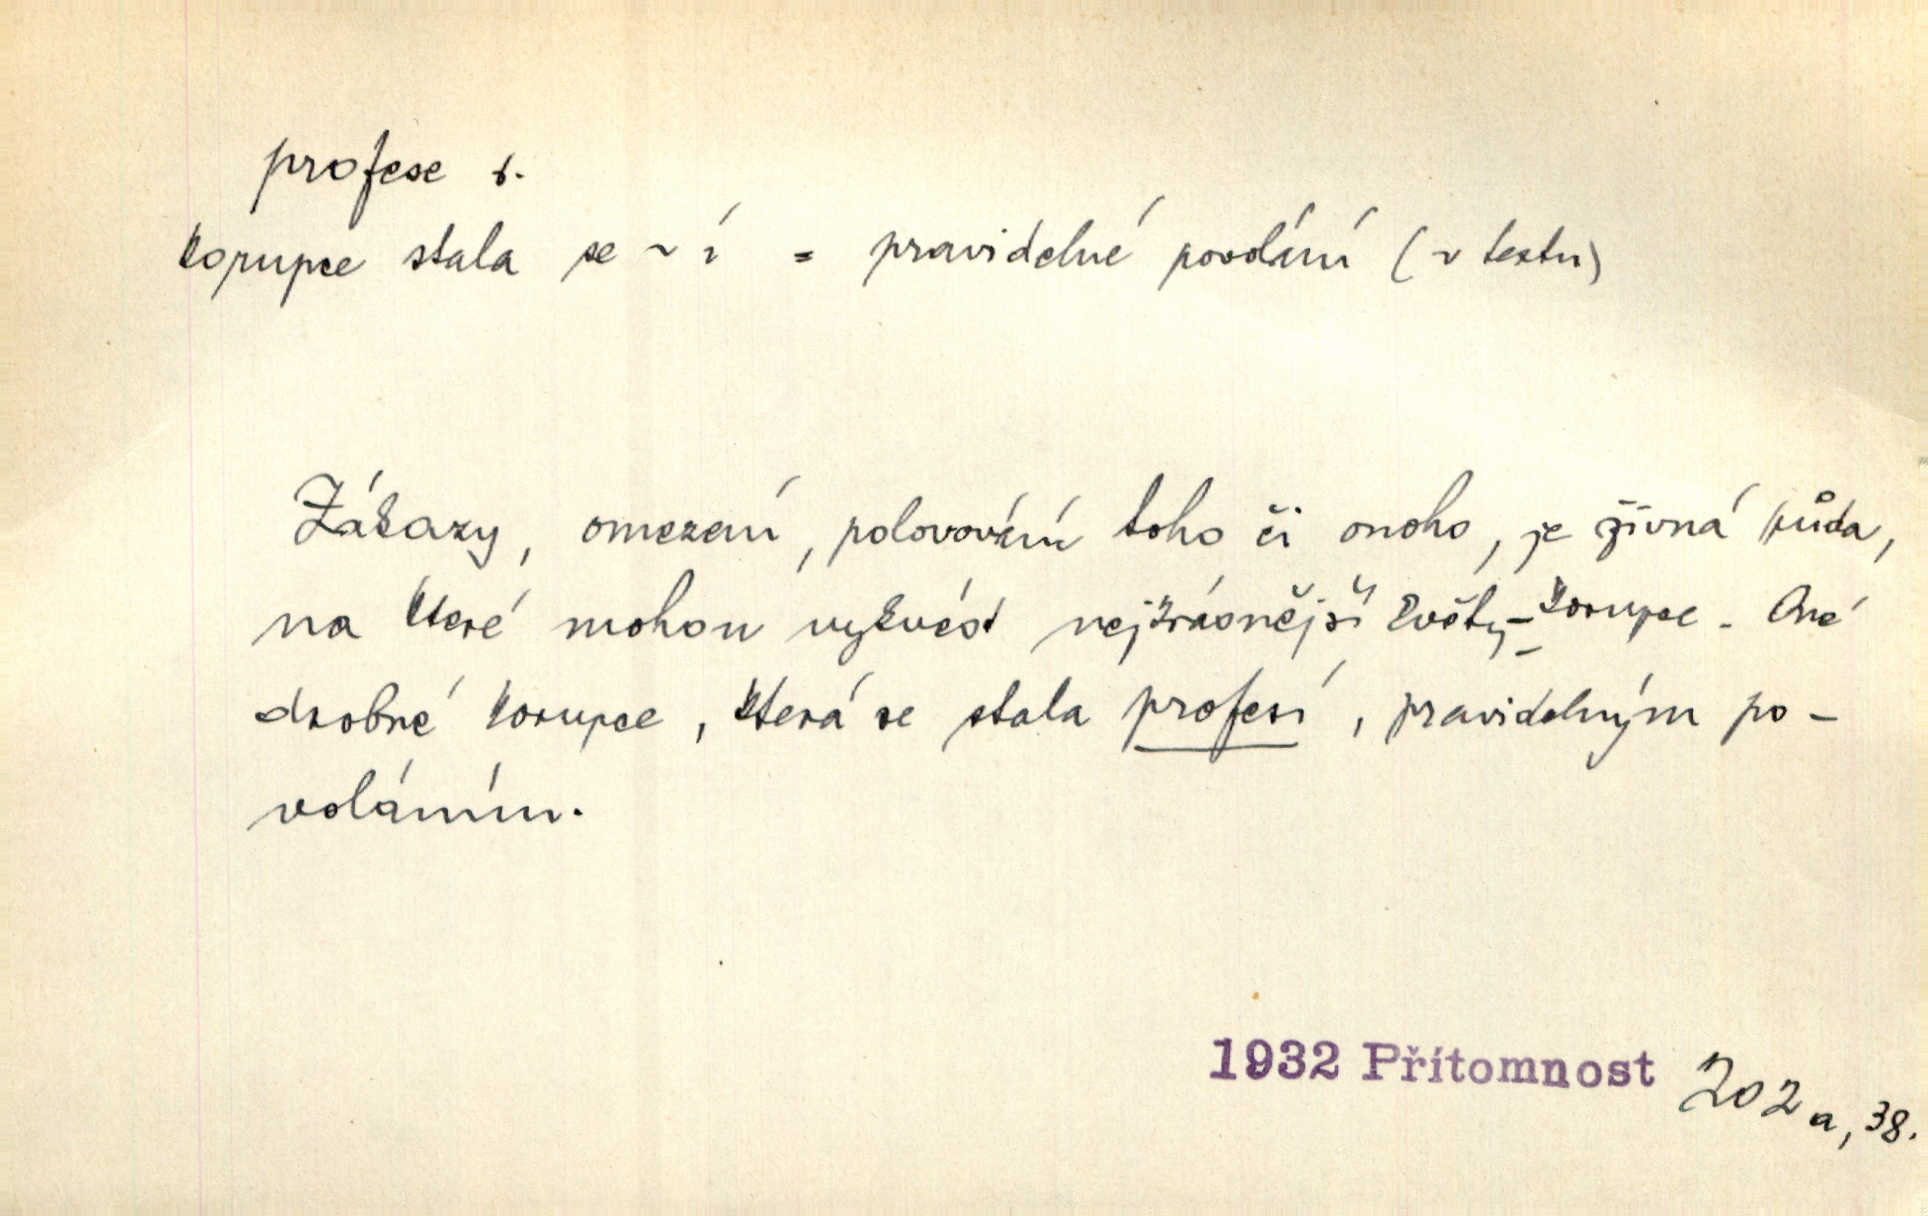 profese f.
korupce stala se ~ í = pravidelné povolání (v textu)
Zákazy, omezení, polovování toho či onoho, je živná půda,
na které mohou vykvést nejkrásnější květy korupce. Oné
drobné korupce, která se stala profesí, pravidelným po-
voláním.
1932 Přítomnost 202a, 38.